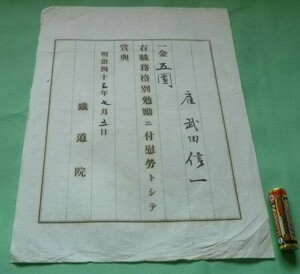 雇 武田信一
一金五圓
右職務格別勉勵ニ付慰勞トシテ
賞與
明治四十五年七月五日
鐵道院